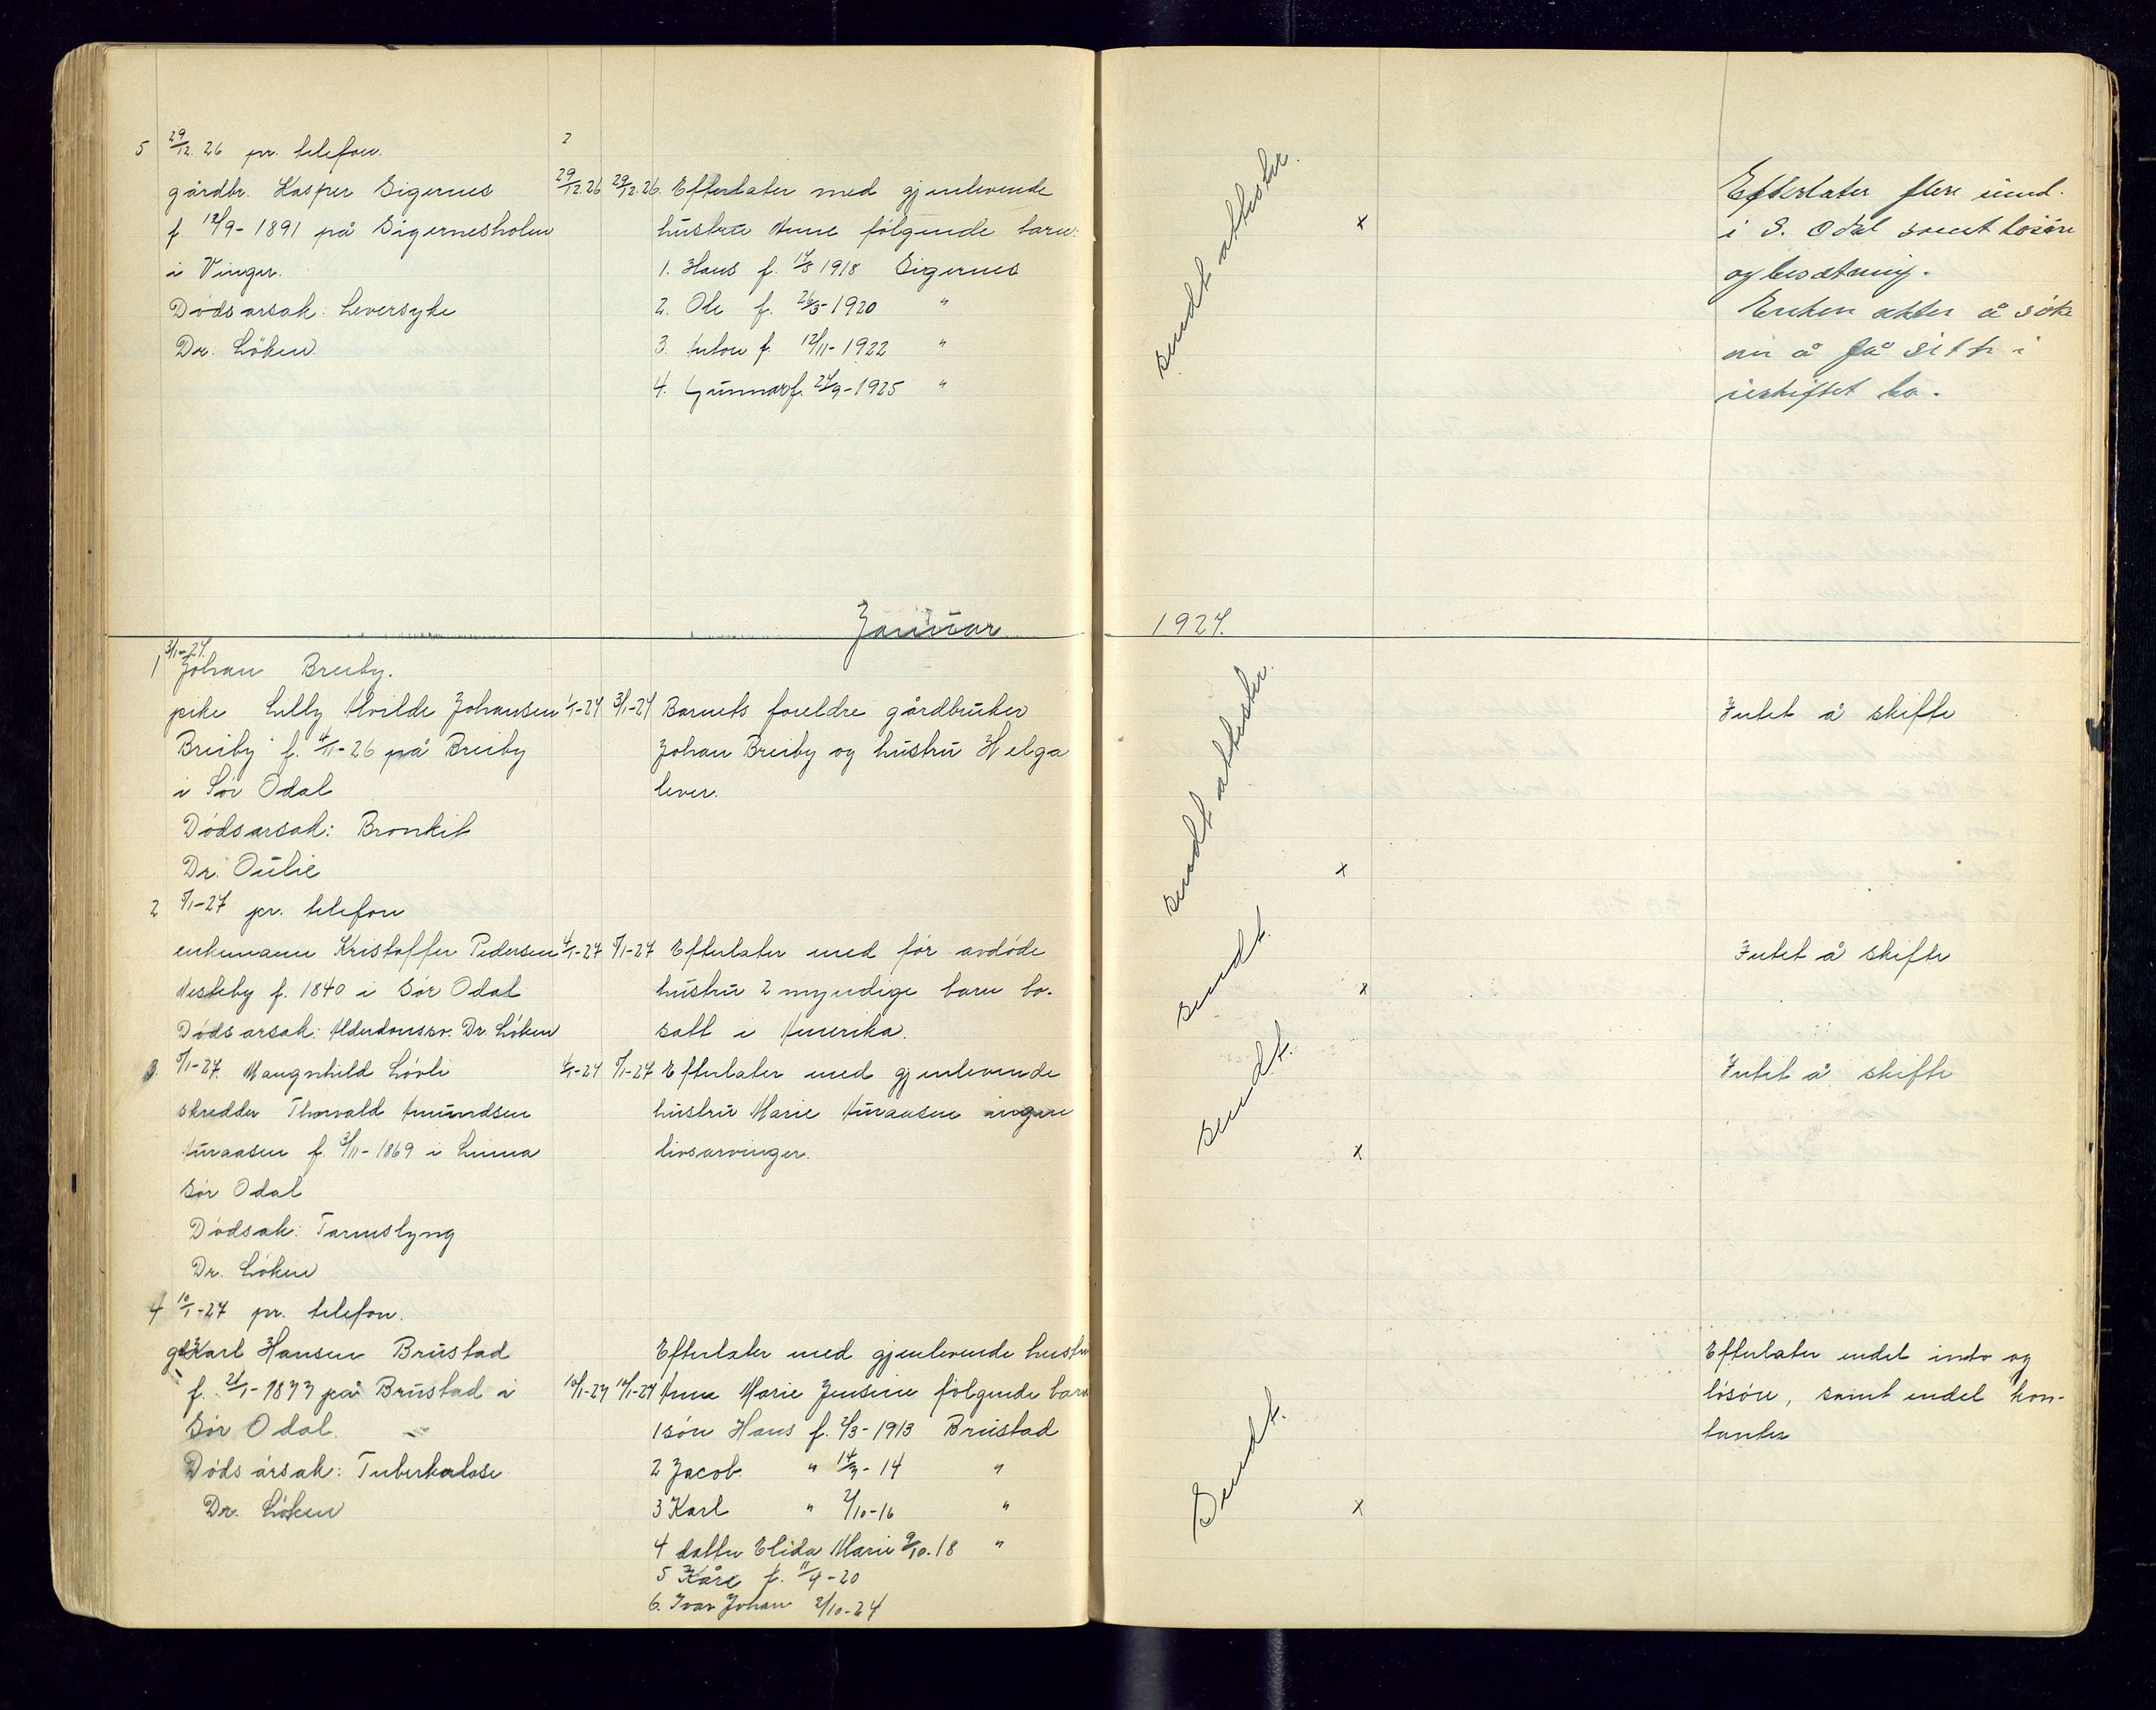 5 29/12. 26 pr. telefon. 2
gårdbr. Kasper Sigernes 29/12.26 29/12.26. Efterlater med gjenlevende
f. 12/9-1891 på Sigernesholm hustru Anne følgende barn:
i Vinger. 1. Hans f. 1918 Sigernes
Dødsarsak: Leversyke 2. Ole f. 26/3-1920 "
Dr. Löken 3. Anton f. 12/11-1922 "
4. Gunnar f. 24/9-1925 "
sendt attester.
x
Efterlater flere
i S. Odal samt løsøre
og besætning.
Enken akter å søke
om å få sitte i
uskiftet bo.
Januar 1927.
1 3/1-27.
Johan Breiby.
pike Lilly Alvilde Johansen 1/1-27 3/1-27 Barnets foreldre gårdbruker
Breiby f. 4/11-26 på Breiby Johan Breiby og hustru Helga
i Sör Odal lever.
Dödsarsak: Bronkit
Dr. Oulie
sendt attester.
x
Intet å skifte
2 5/1-27 pr. telefon
enkemann Kristoffer Pedersen 4/1-27 5/1-27 Efterlater med før avdöde
Nesteby f. 1840 i Sör Odal hustru 2 myndige barn bo-
Döds arsak: Alderdomssv. Dr. Löken satt i Amerika.
sendt.
x
Intet å skifte
3. 5/1-27. Maugnhild Lövli 4/1-27 5/1-27 Efterlater med gjenlevende
skredder Thorvald Amundsen hustru Marie Auraasen ingen
Auraasen f. 3/11-1869 i Linna livsarvinger.
Sör Odal
Dödsak: Tarmslyng
Dr. Löken
sendt.
x
Intet å skifte
4 10/1-27 pr. telefon.
Karl Hansen Brustad Efterlater med gjenlevende hustru
f. 21/1-1877 på Brustad i 10/1-27 10/1-27 Anna Marie Jensine følgende barn
Sör Odal. 1 sön Hans f. 2/3-1913 Brustad
Döds årsak: Tuberkulose 2 Jacob " 14/3-14 "
Dr. Löken 3 Karl " 2/10-16 "
4 datter Elida Marie 9/10.18 "
5 Kåre f. 11/4-20
6. Ivar Johan 2/10-24
Sendt.
x
Efterlater endel indb og
lösöre, samt endel kon-
tanter